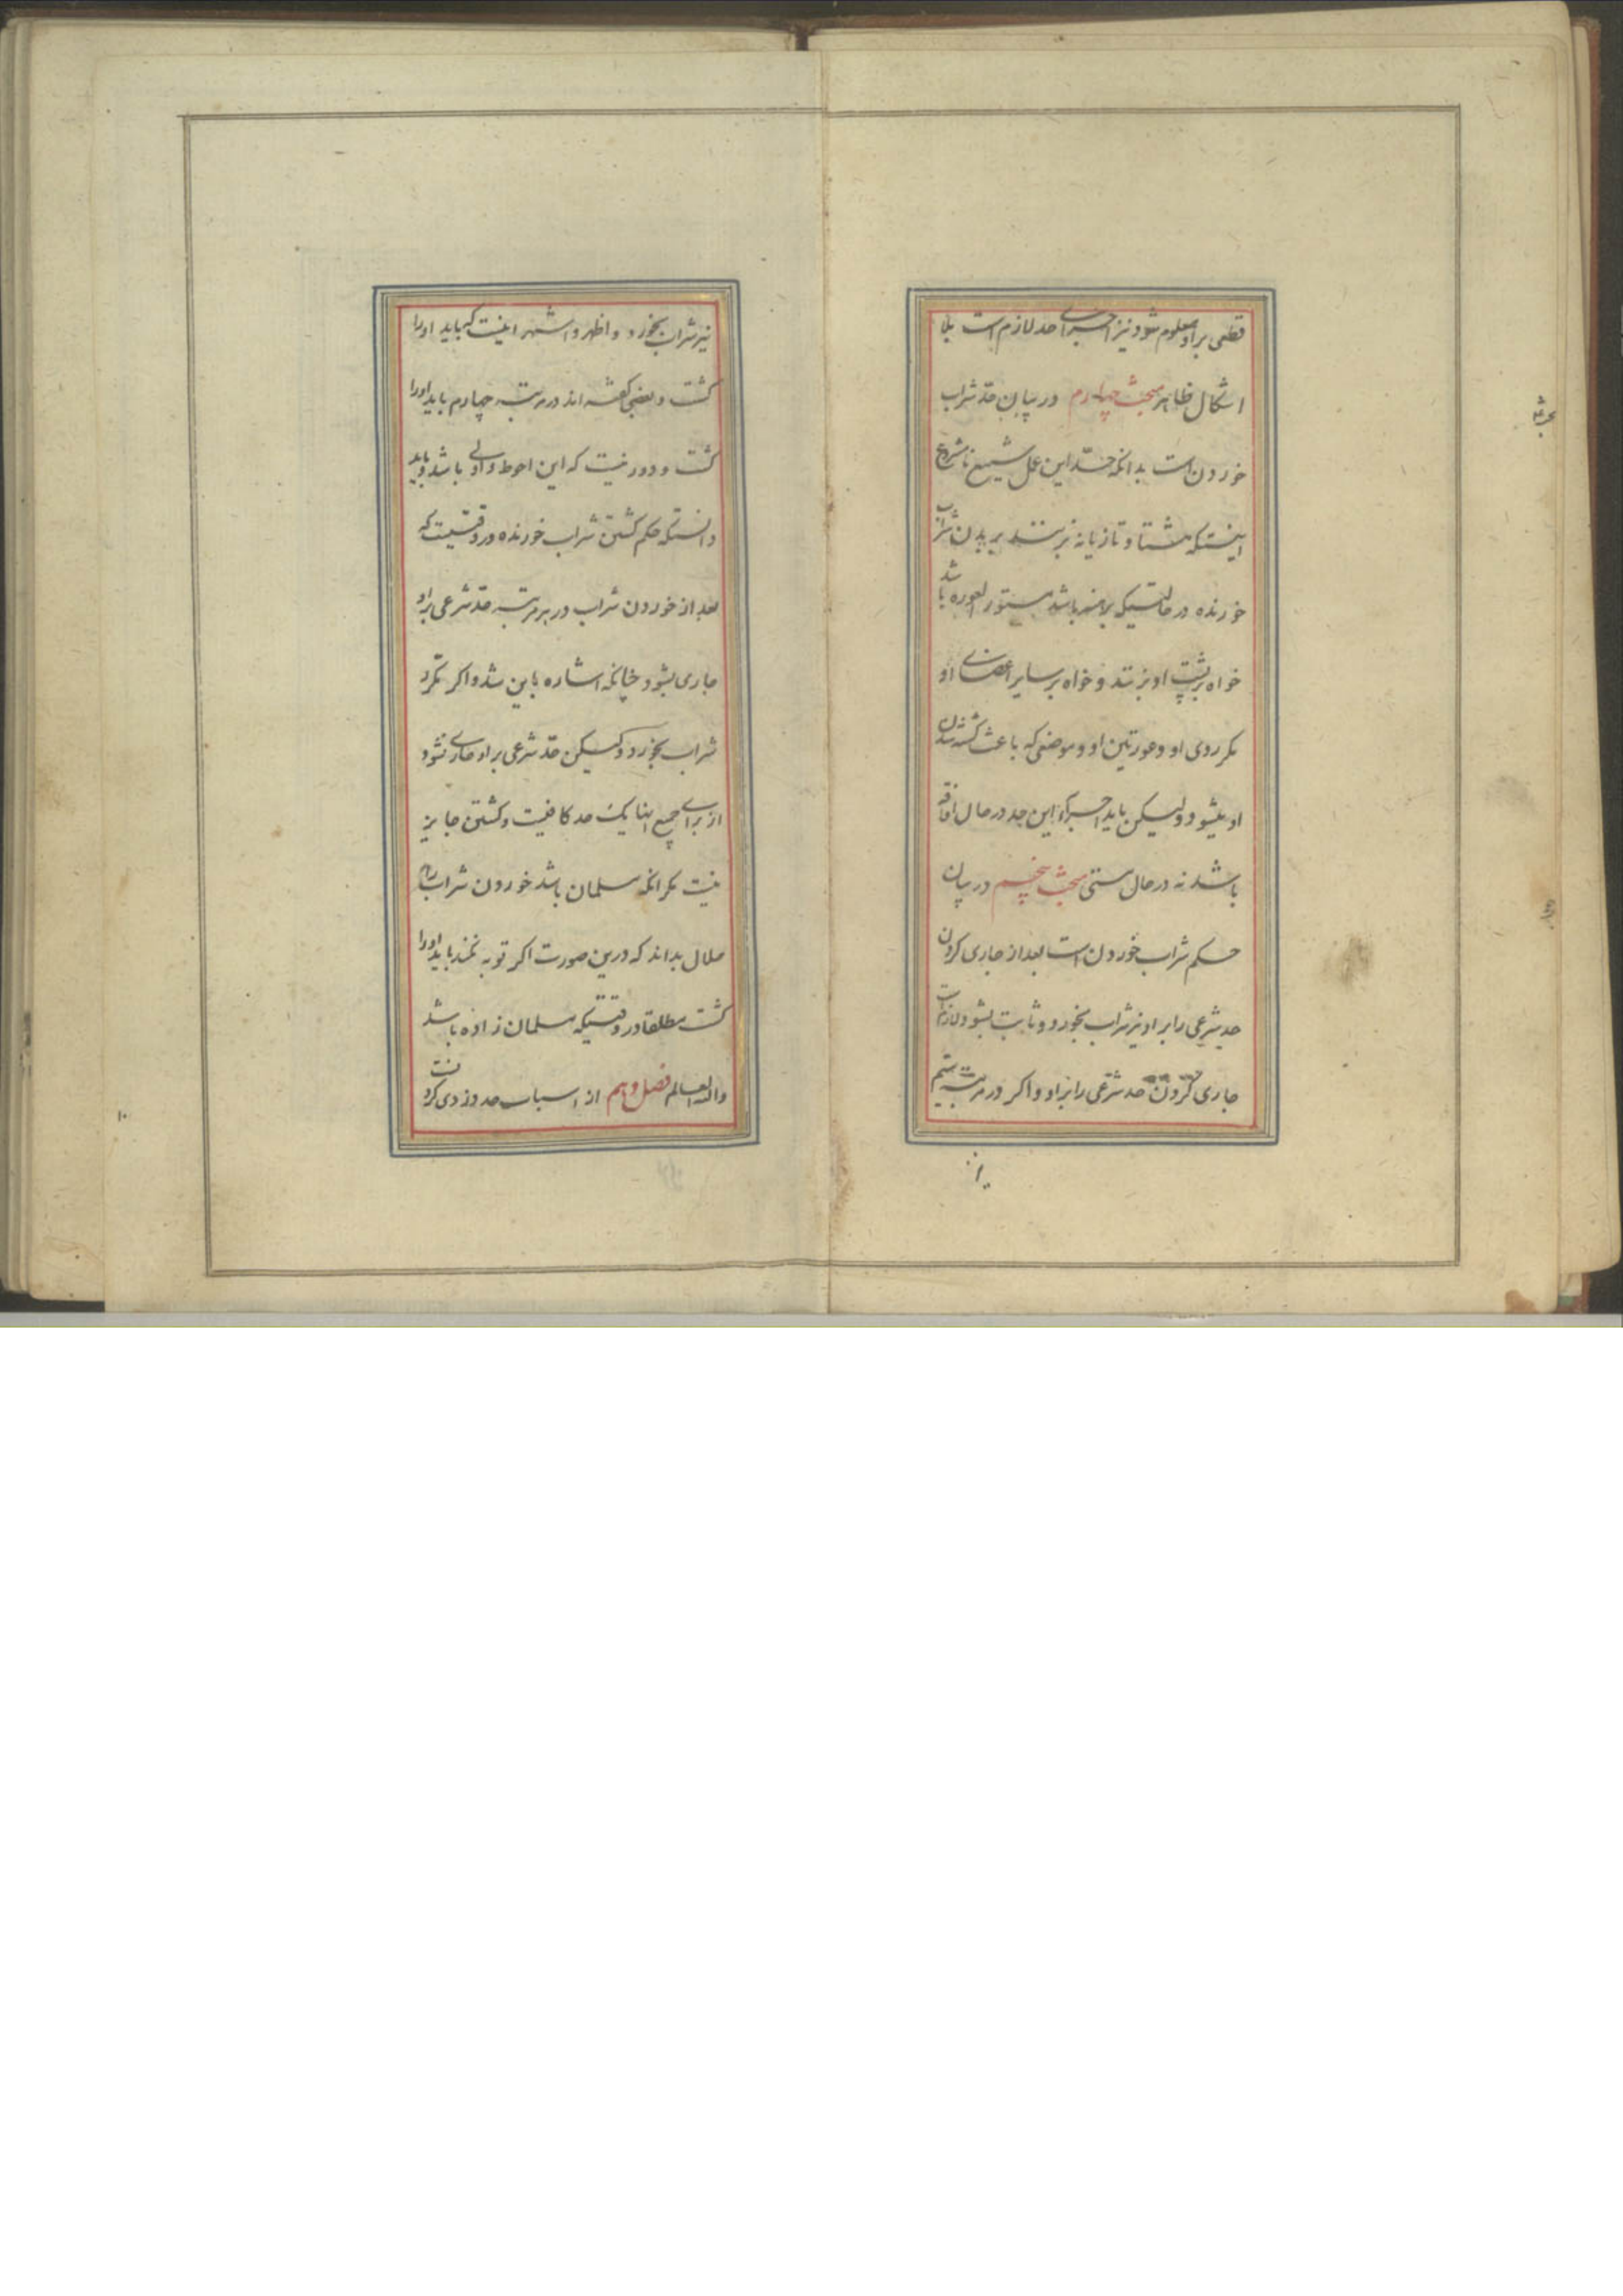 قطعی بر او معلوم شود نیز اجرای حد لازم است بلا
اشکال ظاهر مبحث چهارم در بیان حد شراب
خوردن است بدانکه حد این عمل شنیع نامشروع
اینست که هشتاد تازیانه بزنند بر بدن شراب
خورنده در حالتیکه برهنه باشد مستور العوره باشد
خواه بر پشت او بزنند و خواه بر سایر اعضای او
مکر روی او و عورتین او و موضعی که باعث کشته شدن
او بشود ولیکن باید اجرای این حد در حال افاقه
باشد نه در حال مستی مبحث پنجم در بیان
حکم شراب خوردن است بعد از جاری کردن
حد شرعی را بر او نیز شراب بخورد و ثابت بشود لازم است
جاری کردن حد شرعی را بر او و اکر در مرتبه سیم
نیز شراب بخورد و اظهر و اشهر اینست که باید او را
کشت و بعضی کفته اند در مرتبه چهارم باید او را
کشت و دور نیست که این احوط و اولی باشد و باید
دانست که حکم کشتن شراب خورنده در وقتیست که
بعد از خوردن شراب در هر مرتبه حد شرعی بر او
جاری بشود چنانکه اشاره باین شد و اکر مکرر
شراب بخورد ولیکن حد شرعی بر او جاری نشود
از برای جمیع اینها یک حد کافیست و کشتن جایز
نیست مکر انکه مسلمان باشد خوردن شراب را
حلال بداند که درین صورت اکر توبه نکند باید او را
کشت مطلقا در وقتیکه مسلمان زاده باشد
والله العالم فصل دهم از اسباب حد دزدی کردنست